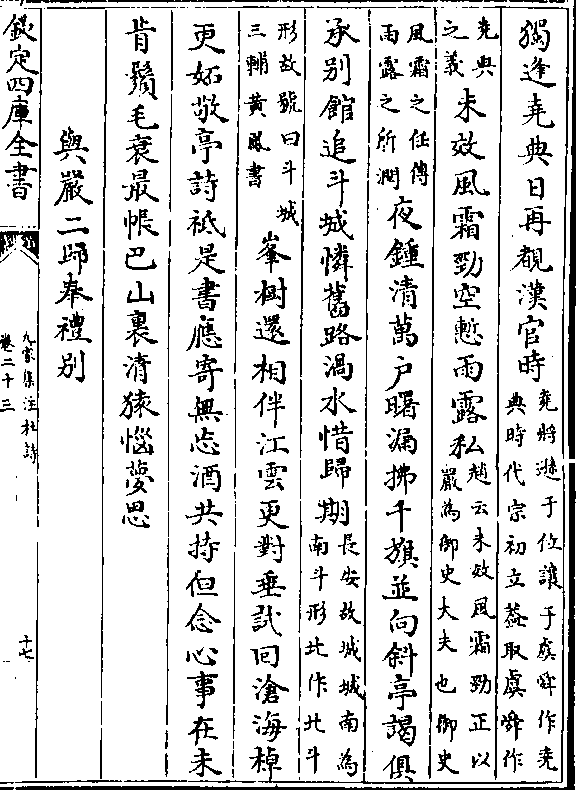 獨逢堯典日再覩漢官時堯將遜于位讓于虞舜作堯
典時代宗初立葢取虞舜作
堯典
之義未效風霜勁空慙雨露私趙云未效風霜勁正以
嚴為御史大夫也御史
風霜之任傳
雨露之所潤夜鍾清萬户曙漏拂千旗並向斜亭謁俱
承别館追斗城憐舊路渦水惜歸期長安故城城南為
南斗形北作北斗
形故號曰斗城
三輔黄書峯樹還相伴江雲更對垂試回滄海棹
更妬敬亭詩祗是書應寄無忘酒共持但念心事在未
肯鬢毛衰最悵巴山裏清猿惱夢思
與嚴二歸奉禮别
欽定四庫全書
九家集注杜詩
卷二十三
十七